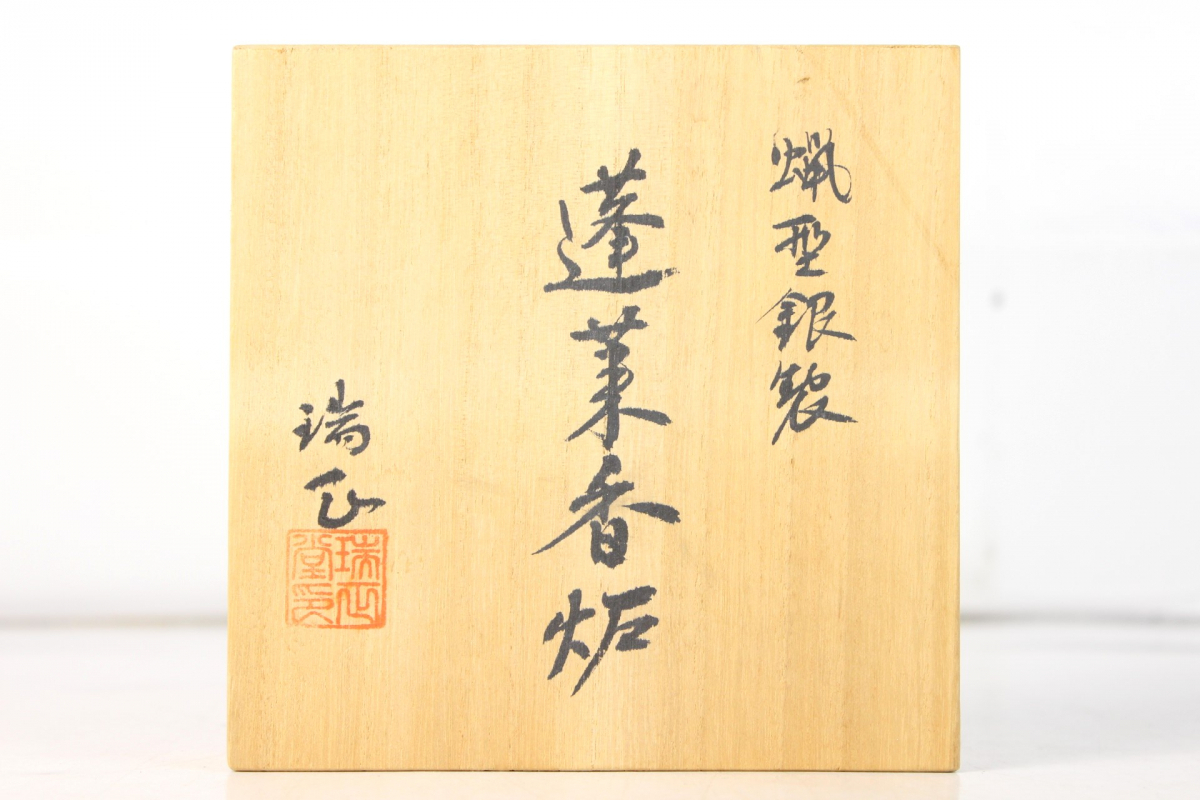 蝋型銀製
蓬莱香炉
瑞正
瑞正堂印